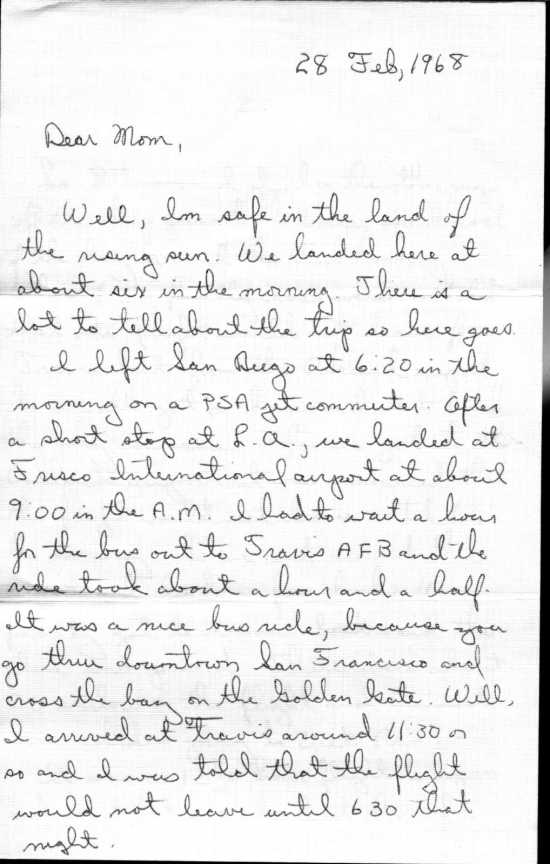 28 Feb, 1968
Dear Mom,
Well, Im safe in the land of
the rising sun. We landed here at
about six in the morning. There is a
lot to tell about the trip so here goes.
I left San Diego at 6:20 in the
morning on a PSA jet commuter. After
a short stop at L.A., we landed at
Frisco International airport at about
9:00 in the A.M. I had to wait a hour
for the bus out to Travis AFB and the
ride took about a hour and a half.
It was a nice bus ride, because you
go thru downtown San Francisco and
cross the bay on the Golden Gate. Well,
I arrived at Travis around 11:30 or
so and I was told that the flight
would not leave until 6 30 that
night.